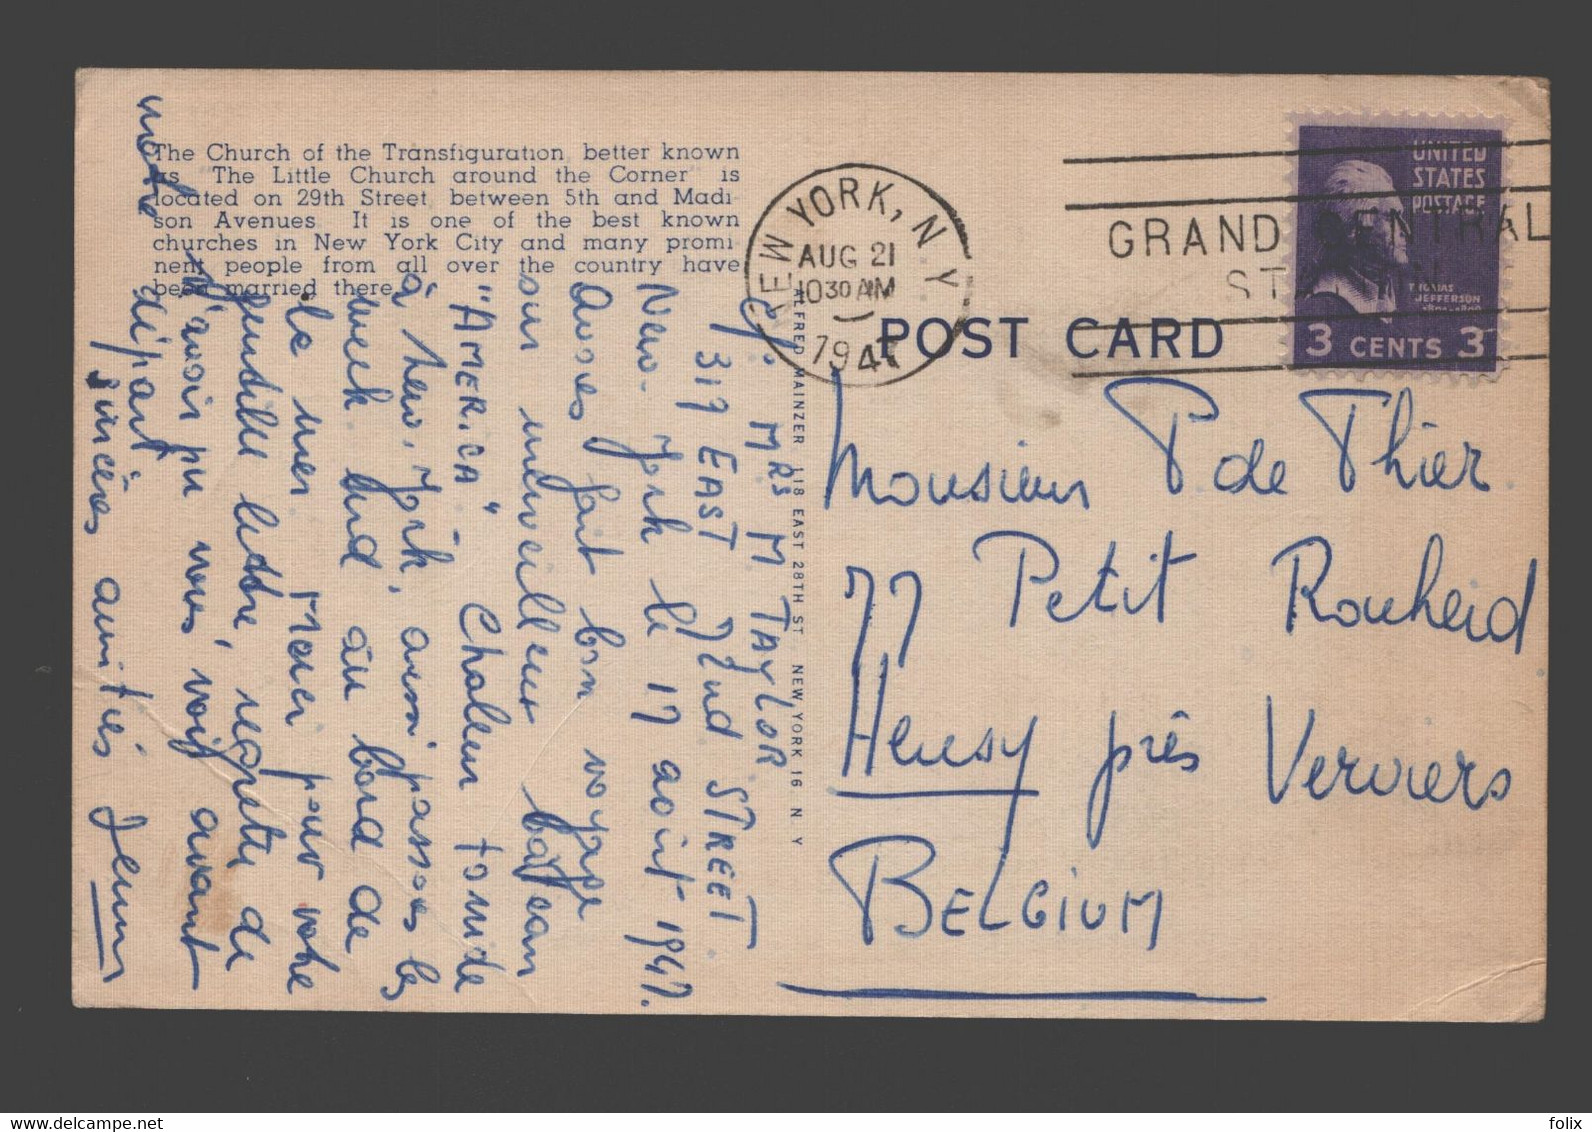 The Church of the Transfiguration better known
as "The Little Church around the Corner" is
located on 29th Street, between 5th and Madi-
son Avenues. It is one of the best known
churches in New York City and many promi-
nent people from all over the country have
been married there.
c/: MRS M TAYLOR
319 EAST 72nd STREET
New-York le 17 août 1947.
Avons fait bon voyage
sur merveilleux bateau
"AMERICA" Chaleur torride
à New-York, avons passés les
week end au bord de
la mer. Merci pour votre
gentille lettre, regrette de
n'avoir pu vous voir avant
notre départ
Sincères amitiés
ALFRED MAINZER 118 EAST 28TH ST NEW YORK 16 N Y
NEW YORK, N.Y.
AUG 21
1030 AM
1947
GRAND CENTRAL
STATION
UNITED
STATES
POSTAGE
THOMAS
JEFFERSON
3 CENTS 3
POST CARD
Monsieur P de Thier
77 Petit Rouheid
Heusy près Verviers
BELGIUM
folix